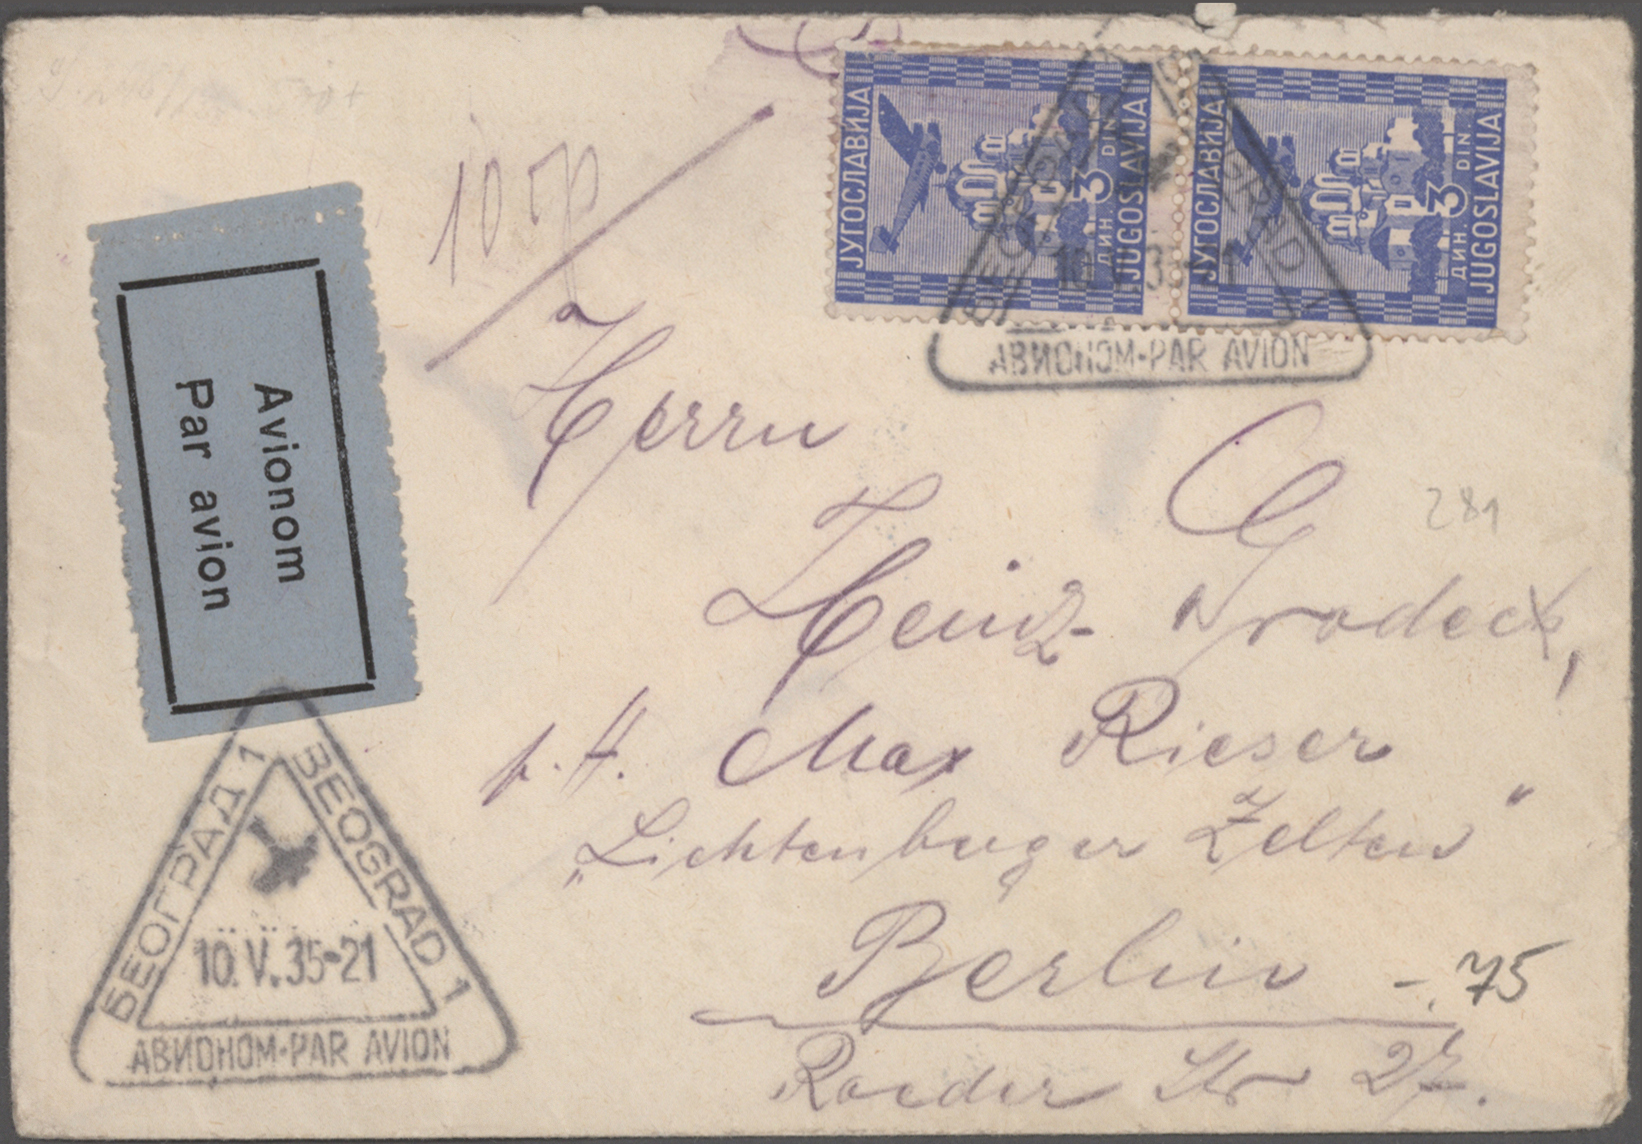 ЈУГОСЛАВИЈА
ДИН. 3 DIN.
JUGOSLAVIJA
ЈУГОСЛАВИЈА
ДИН. 3 DIN.
JUGOSLAVIJA
БЕОГРАД 1 BEOGRAD 1
10.V.35-21
АВИОНОМ-PAR AVION
10 гр
Avionom
Par avion
Herrn
281
Heinz Grodeck,
p. H. Max Rieser
„Lichtenburger Zelten"
Berlin
-.75
Roeder Str 27.
БЕОГРАД 1 BEOGRAD 1
10.V.35-21
АВИОНОМ-PAR AVION